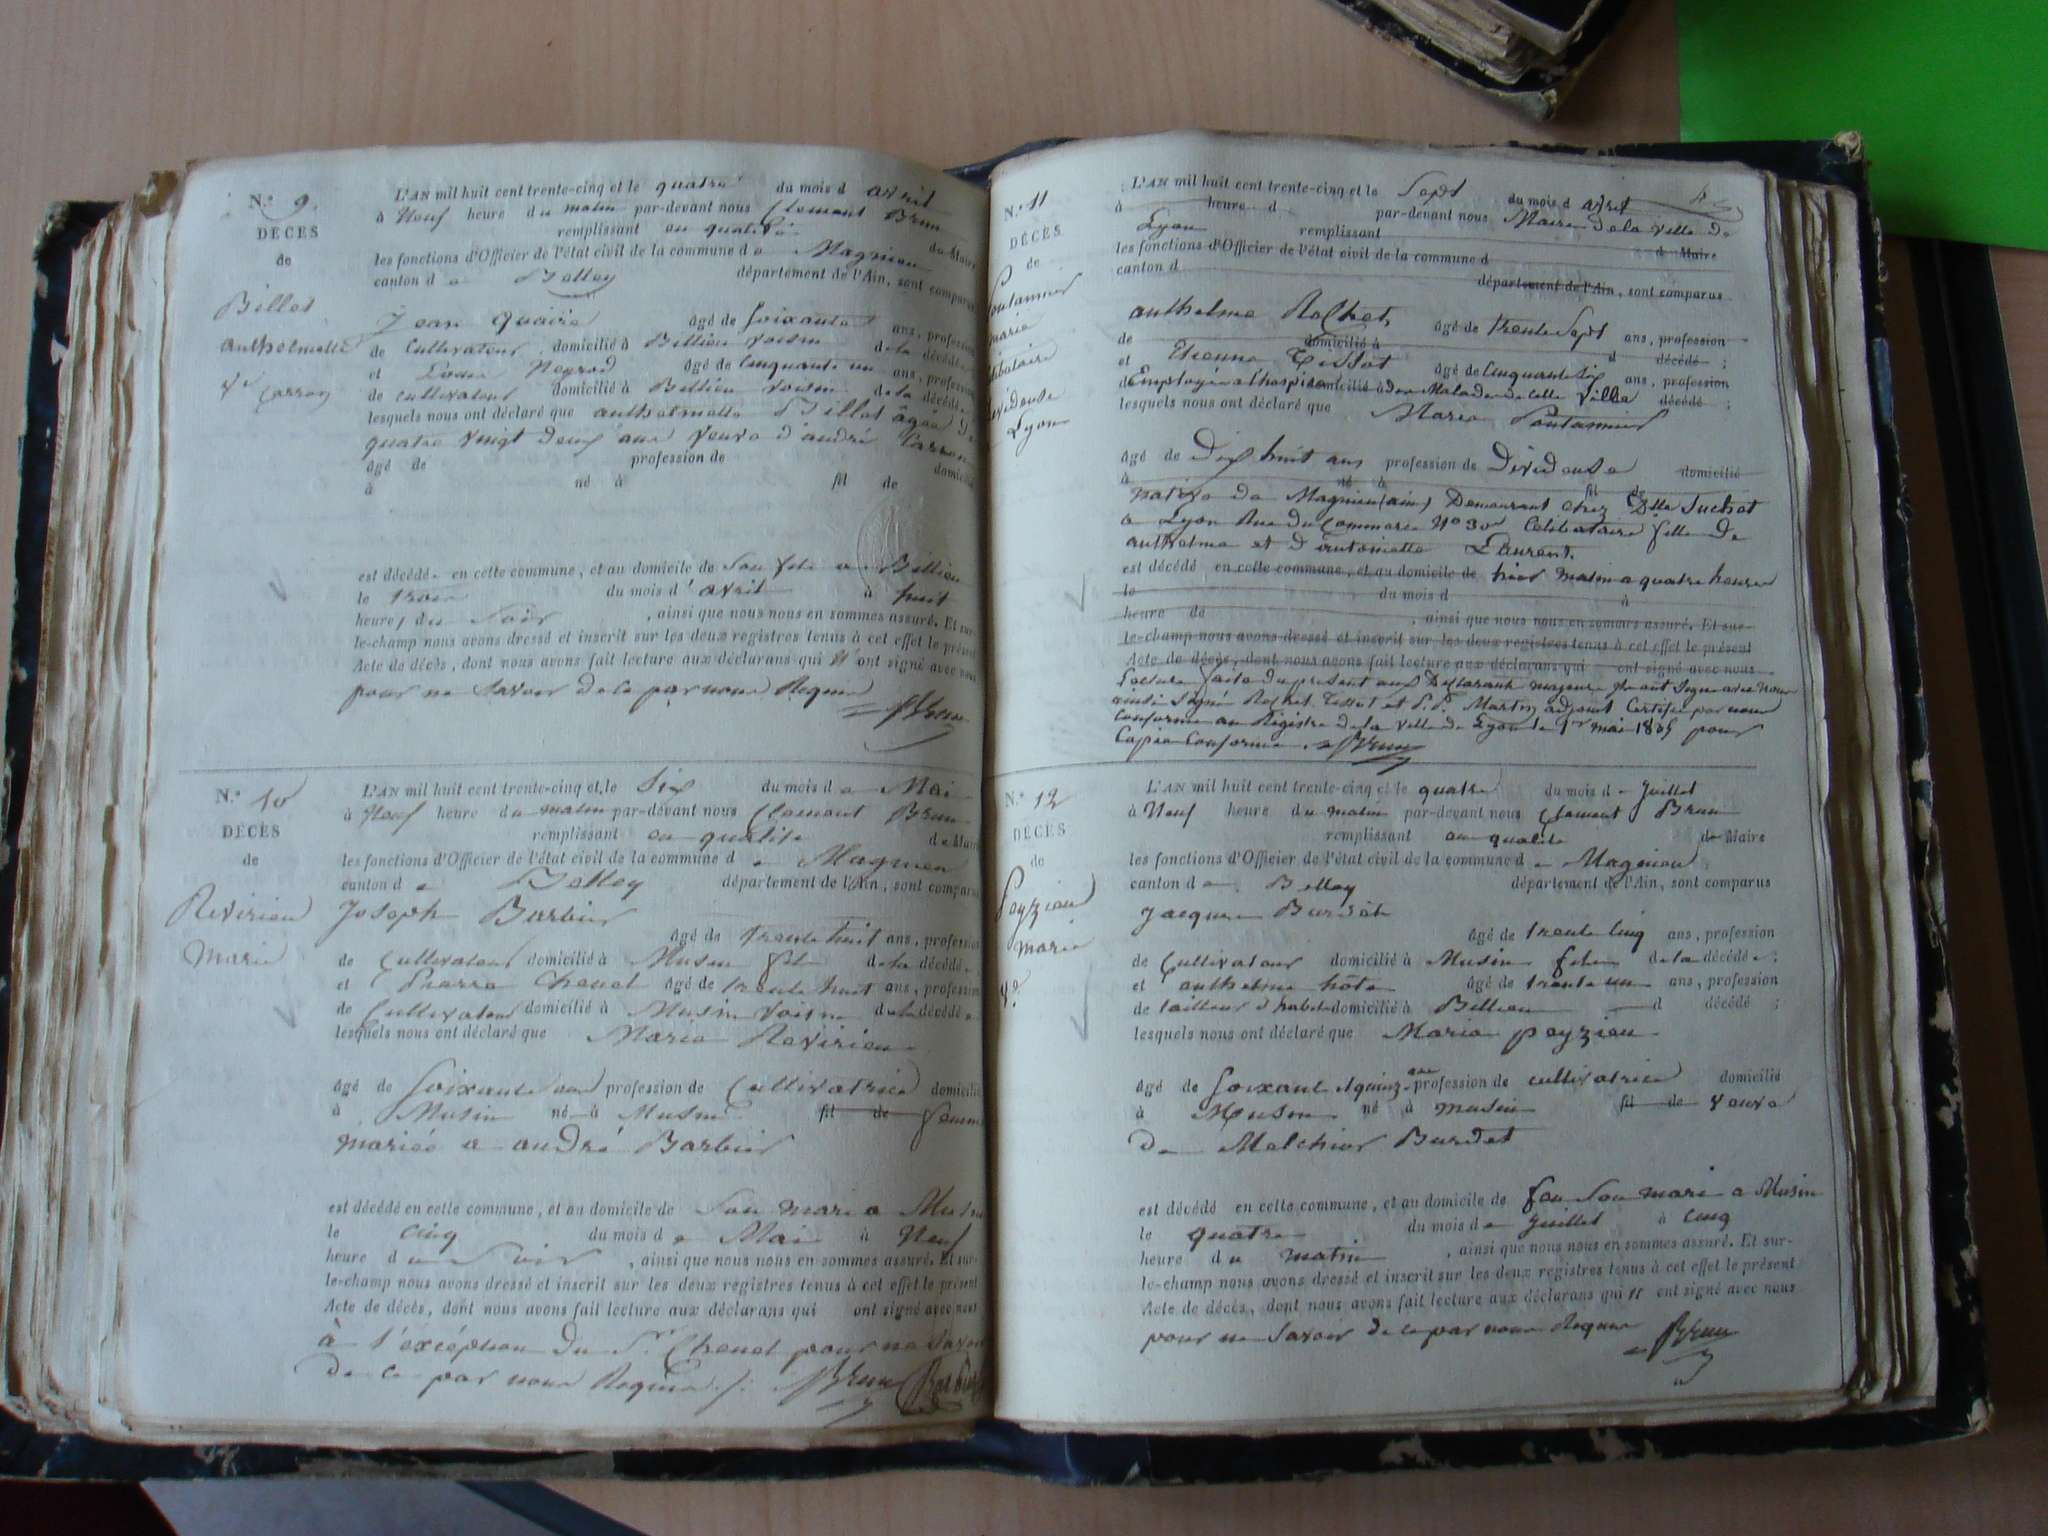 N.° 9.
DÉCÈS
de
Billot
anthelmette
Ve Carron
L'AN mil huit cent trente-cinq et le quatre du mois d avril
à Neuf heure du matin par-devant nous Clement Brun
remplissant en qualité de Maire
les fonctions d'Officier de l'état civil de la commune de Magnieu
canton de Belley département de l'Ain, sont comparus
Jean quairé âgé de Soixante ans, profession
de Cultivateur domicilié à Billieu voisin de la décédée
et Neyrod âgé de Cinquante un ans, profession
de cultivateur domicilié à Billieu voisin de la décédée
lesquels nous ont déclaré que anthelmette Billot âgée de
quatre vingt deux ans veuve d'andré Carron
âgé de profession de domicilié
à né à fil de
est décédée en cette commune, et au domicile de Son fils a Billieu
le trois du mois d'avril à huit
heures du Soir, ainsi que nous nous en sommes assuré. Et sur-
le-champ nous avons dressé et inscrit sur les deux registres tenus à cet effet le présent
Acte de décès, dont nous avons fait lecture aux déclarans qui n'ont signé avec nous
pour ne Savoir de ce par nous Requis
Brun
N.° 10
DÉCÈS
de
Revirieu
Marie
L'AN mil huit cent trente-cinq et le Six du mois de Mai
à Neuf heure du matin par-devant nous Clement Brun
remplissant en qualité de Maire
les fonctions d'Officier de l'état civil de la commune de Magnieu
canton de Belley département de l'Ain, sont comparus
Joseph Barbier
âgé de trente huit ans, profession
de Cultivateur domicilié à Musin fils de la décédée
et Pierre Chenel âgé de trente huit ans, profession
de Cultivateur domicilié à Musin voisin de la décédée
lesquels nous ont déclaré que Marie Revirieu
âgé de Soixante ans profession de Cultivatrice domicilié
à Musin né à Musin fil de femme
mariée a andré Barbier
est décédé en cette commune, et au domicile de Son mari a Musin
le cinq du mois de Mai à Neuf
heure du soir, ainsi que nous nous en sommes assuré. Et sur-
le-champ nous avons dressé et inscrit sur les deux registres tenus à cet effet le présent
Acte de décès, dont nous avons fait lecture aux déclarans qui ont signé avec nous
à l'exception du Sr Chenel pour ne Savoir
de ce par nous Requis Brun Barbier
N.° 11
DÉCÈS
de
Pontannier
marie
Célibataire
Devideuse
Lyon
L'AN mil huit cent trente-cinq et le Sept du mois d avril
à heure d par-devant nous Maire de la ville de
Lyon remplissant d Maire
les fonctions d'Officier de l'état civil de la commune d
canton d département de l'Ain, sont comparus
anthelme Rochet âgé de trente Sept ans, profession
de domicilié à d décédé ;
et Etienne Tissot âgé de Cinquante Six ans, profession
d'Employés a l'hospice domicilié à des Malades de cette Ville décédé ;
lesquels nous ont déclaré que Marie Pontannier
âgé de Dix huit ans profession de Devideuse domicilié
à né à fil de
native de Magnieu (ain) Demeurant chez Dlle Suchet
a Lyon Rue du Commerce N° 30 Célibataire fille de
anthelme et d'antoinette Laurent.
est décédé en cette commune, et au domicile de hier matin a quatre heures
le du mois d à
heure de , ainsi que nous nous en sommes assuré. Et sur-
le-champ nous avons dressé et inscrit sur les deux registres tenus à cet effet le présent
Acte de décès, dont nous avons fait lecture aux déclarans qui ont signé avec nous
Lecture faite du present aux Déclarants majeurs ils ont Signé avec Nous
ainsi Signé Rochet, Tissot et Martin adjoint Certifié par nous
Conforme au Régistre de la Ville de Lyon le 1er mai 1835 pour
Copie Conforme. Brun
N.° 12
DÉCÈS
de
Peyzieu
marie
Ve.
L'AN mil huit cent trente-cinq et le quatre du mois de Juillet
à Neuf heure du matin par-devant nous Clement Brun
remplissant en qualité de Maire
les fonctions d'Officier de l'état civil de la commune de Magnieu
canton de Belley département de l'Ain, sont comparus
Jacques Burdet
âgé de trente Cinq ans, profession
de Cultivateur domicilié à Musin fils de la décédée ;
et anthelme hôte âgé de trente un ans, profession
de tailleur d'habit domicilié à Billieu d décédé ;
lesquels nous ont déclaré que Marie peyzieu
âgé de Soixante et quinze ans profession de cultivatrice domicilié
à Musin né à musin fil de veuve
de Melchior Burdet
est décédé en cette commune, et au domicile de feu Son mari a Musin
le quatre du mois de Juillet à cinq
heure du matin, ainsi que nous nous en sommes assuré. Et sur-
le-champ nous avons dressé et inscrit sur les deux registres tenus à cet effet le présent
Acte de décès, dont nous avons fait lecture aux déclarans qui n'ont signé avec nous
pour ne Savoir de ce par nous Requis Brun